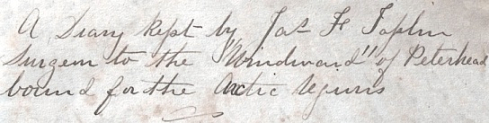 A Diary kept by Jas F Taplin
Surgeon to the "Windward" of Peterhead
bound for the Arctic Regions